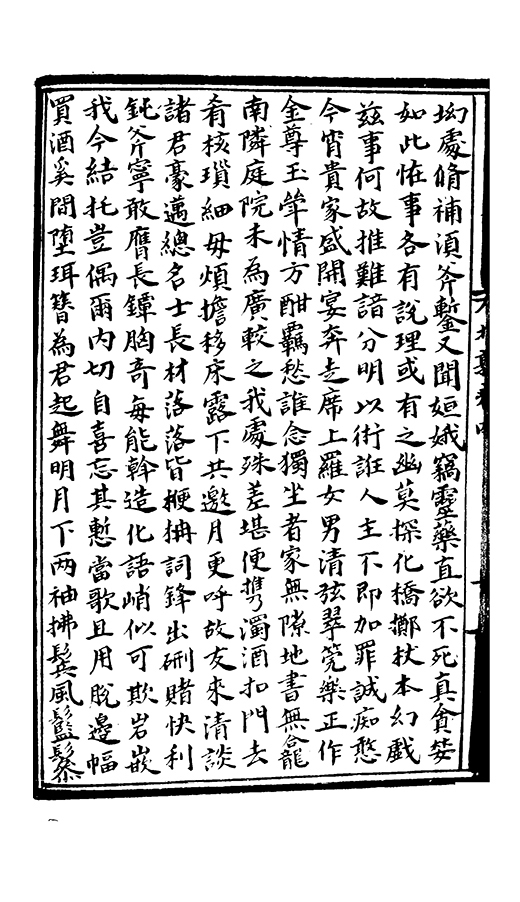 坳處脩補須斧鏨又聞姮娥竊靈藥直欲不死真貪婪
如此恠事各有說理或有之幽莫探化橋擲杖本幻戲
茲事何故推難諳分明以術誑人主不即加罪誠痴憨
今宵貴家盛開宴奔走席上羅女男清弦翠筦樂正作
金尊玉斝情方酣羈愁誰念獨坐者家無隙地書無龕
南隣庭院未為廣較之我處殊差堪便携濁酒扣門去
肴核瑣細毋煩擔移床露下共邀月更呼故友來清談
諸君豪邁總名士長材落落皆楩枬詞鋒出硎賭快利
鈍斧寧敢膺長鐔胸奇每能斡造化語峭似可欺岩嵌
我今結托豈偶爾內切自喜忘其慙當歌且用脫邊幅
買酒奚問墮珥簪為君起舞明月下两袖拂鬓風鬖